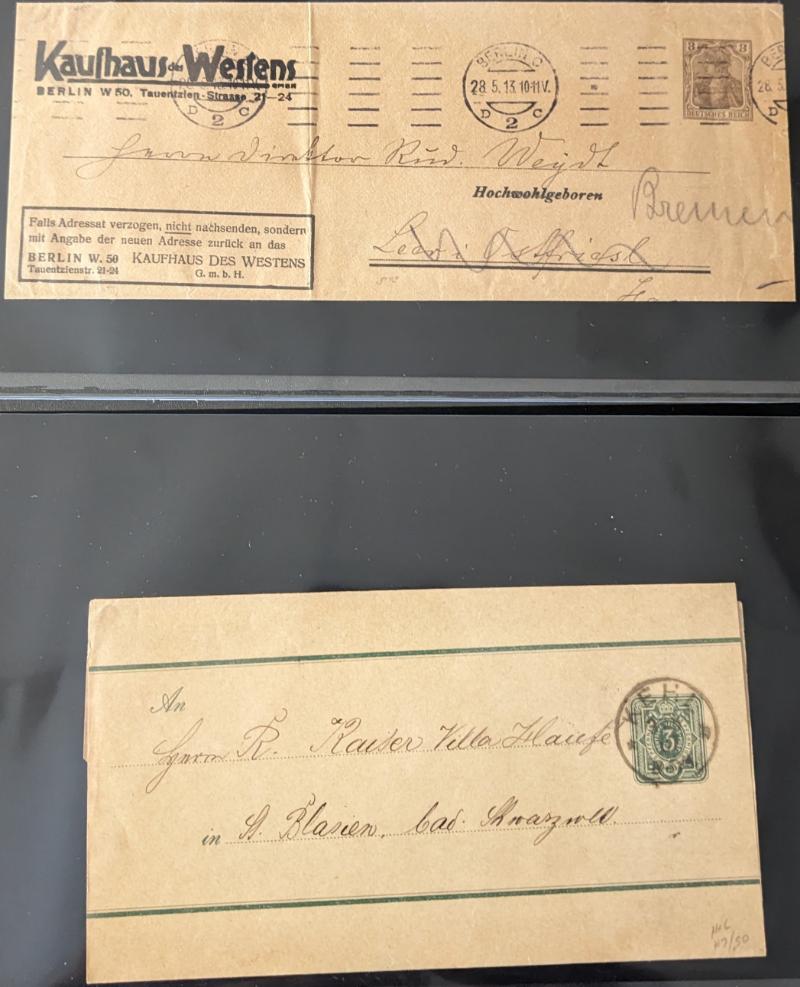 Kaufhaus des Westens
BERLIN W 50, Tauentzien-Strasse 21-24
BERLIN C
28.5.13.10-11V.
D 2 C
3 3
DEUTSCHES REICH
BERLIN C
28.5
D
Herrn Direktor Rud. Weydt
Hochwohlgeboren
Bremen
Leer i Ostfriesl
Falls Adressat verzogen, nicht nachsenden, sondern
mit Angabe der neuen Adresse zurück an das
BERLIN W. 50 KAUFHAUS DES WESTENS
Tauentzienstr. 21-24 G. m. b. H.
An
Herrn R. Kaiser Villa Haufe
3
in St. Blasien, bad. Schwarzwald.